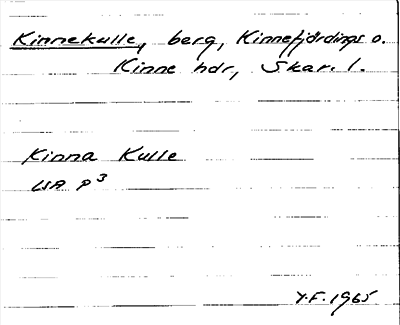 Kinnekulle, berg, Kinnefjärdings o.
Kinne hdr, Skar. l.
Kinna Kulle
LSA P³
Y.F. 1965